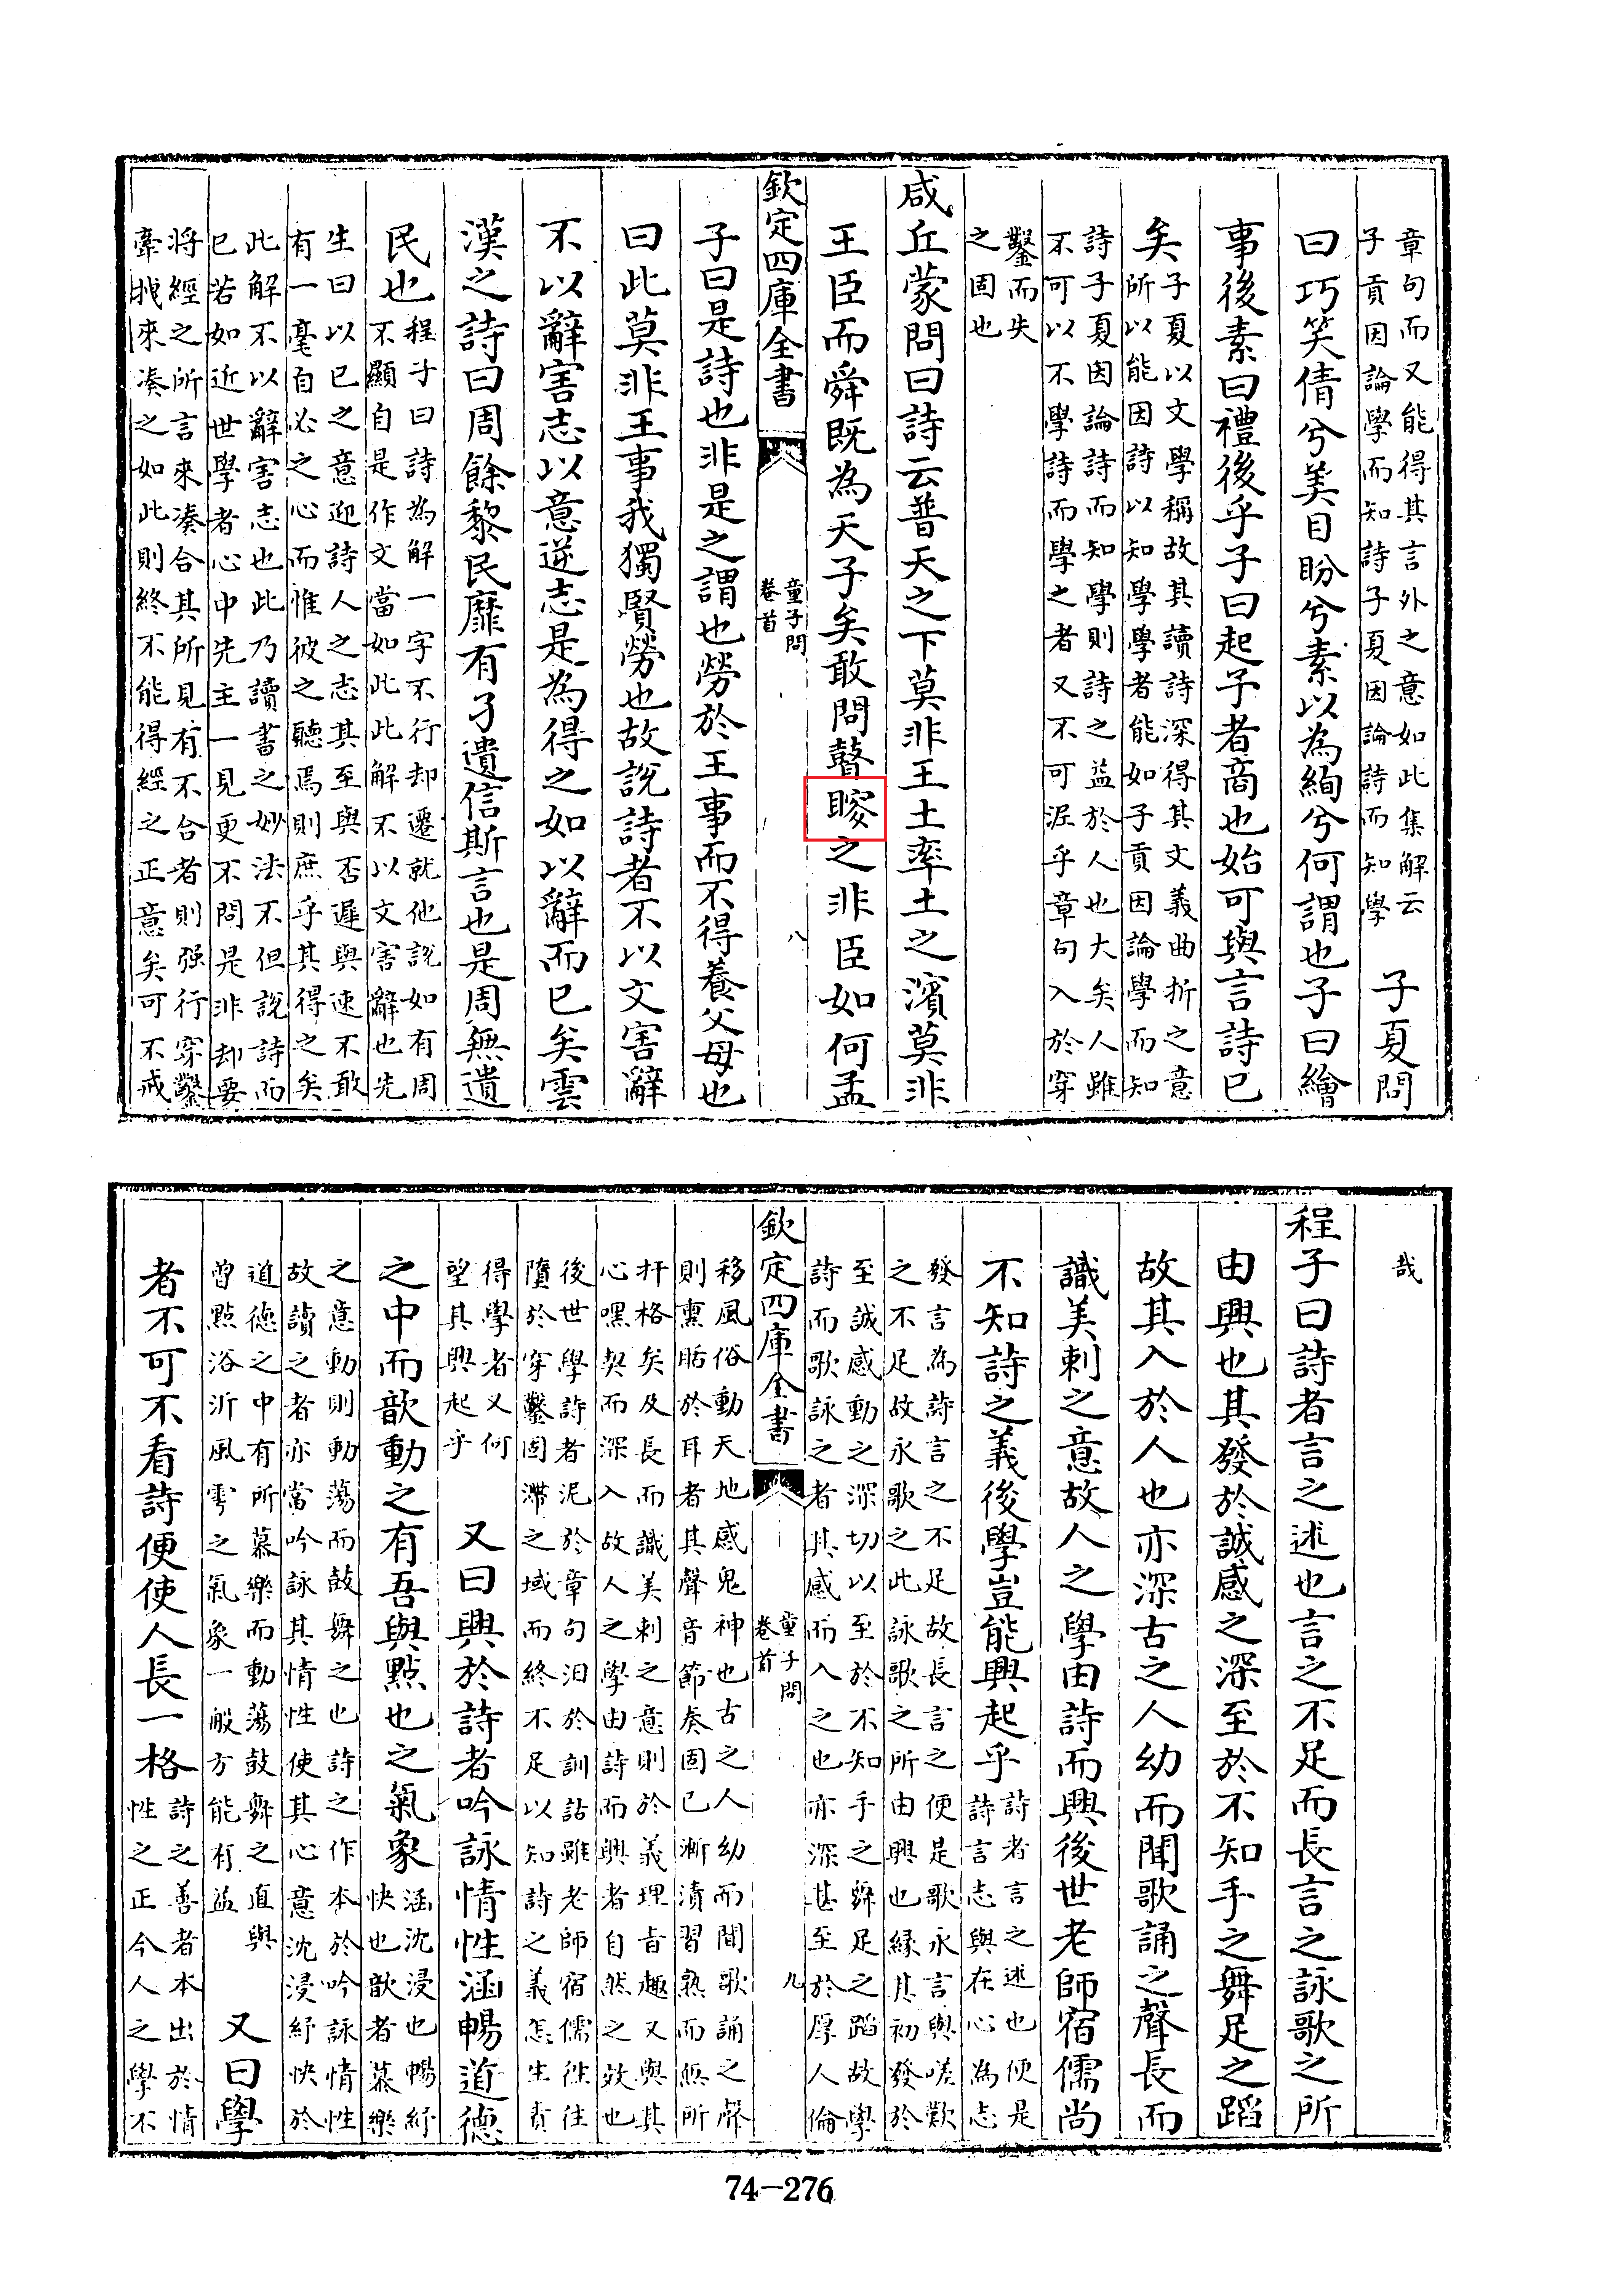 章句而又能得其言外之意如此集解云
子貢因論學而知詩子夏因論詩而知學
子夏問
曰巧笑倩兮美目盼兮素以為絢兮何謂也子曰繪
事後素曰禮後乎子曰起予者商也始可與言詩已
矣
子夏以文學稱故其讀詩深得其文義曲折之意
所以能因詩以知學學者能如子貢因論學而知
詩子夏因論詩而知學則詩之益於人也大矣人雖
不可以不學詩而學之者又不可泥乎章句入於穿
鑿而失
之固也
咸丘蒙問曰詩云普天之下莫非王土率土之濱莫非
王臣而舜既為天子矣敢問瞽瞍之非臣如何孟
欽定四庫全書
童子問
卷首
八
子曰是詩也非是之謂也勞於王事而不得養父母也
曰此莫非王事我獨賢勞也故說詩者不以文害辭
不以辭害志以意逆志是為得之如以辭而已矣雲
漢之詩曰周餘黎民靡有孑遺信斯言也是周無遺
民也
程子曰詩為解一字不行却遷就他說如有周
不顯自是作文當如此此解不以文害辭也先
生曰以已之意迎詩人之志其至與否遲與速不敢
有一毫自必之心而惟彼之聽焉則庶乎其得之矣
此解不以辭害志也此乃讀書之妙法不但說詩而
已若如近世學者心中先主一見更不問是非却要
將經之所言來湊合其所見有不合者則强行穿鑿
牽拽來湊之如此則終不能得經之正意矣可不戒
哉
程子曰詩者言之述也言之不足而長言之詠歌之所
由興也其發於誠感之深至於不知手之舞足之蹈
故其入於人也亦深古之人幼而聞歌誦之聲長而
識美刺之意故人之學由詩而興後世老師宿儒尚
不知詩之義後學豈能興起乎
詩者言之述也便是
詩言志與在心為志
發言為詩言之不足故長言之便是歌永言與嗟歎
之不足故永歌之此詠歌之所由興也緣其初發於
至誠感動之深切以至於不知手之舞足之蹈故學
詩而歌詠之者其感而入之也亦深甚至於厚人倫
欽定四庫全書
童子問
卷首
九
移風俗動天地感鬼神也古之人幼而聞歌誦之聲
則熏聒於耳者其聲音節奏固已漸漬習熟而無所
扞格矣及長而識美刺之意則於義理旨趣又與其
心嘿契而深入故人之學由詩而興者自然之效也
後世學詩者泥於章句汩於訓詁雖老師宿儒往往
墮於穿鑿固滯之域而終不足以知詩之義怎生責
得學者又何
望其興起乎
又曰興於詩者吟詠情性涵暢道德
之中而歆動之有吾與點也之氣象
涵沈浸也暢紓
快也歆者慕樂
之意動則動蕩而鼓舞之也詩之作本於吟詠情性
故讀之者亦當吟詠其情性使其心意沈浸紓快於
道德之中有所慕樂而動蕩鼓舞之直與
曾點浴沂風雩之氣象一般方能有益
又曰學
者不可不看詩便使人長一格
詩之善者本出於情
性之正今人之學不
74-276